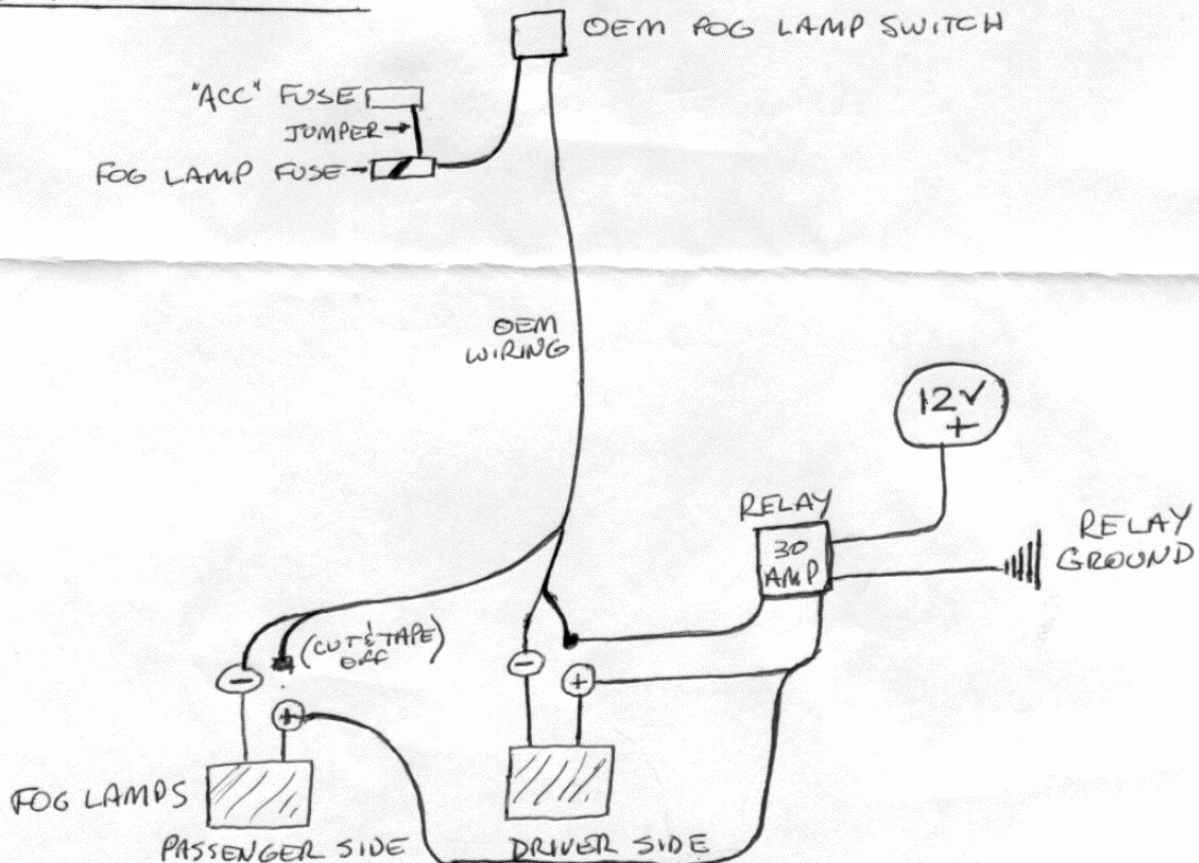 OEM FOG LAMP SWITCH
"ACC" FUSE
JUMPER
FOG LAMP FUSE
OEM
WIRING
12V
+
RELAY
30
AMP
RELAY
GROUND
(CUT & TAPE)
OFF
-
+
-
+
FOG LAMPS
PASSENGER SIDE
DRIVER SIDE